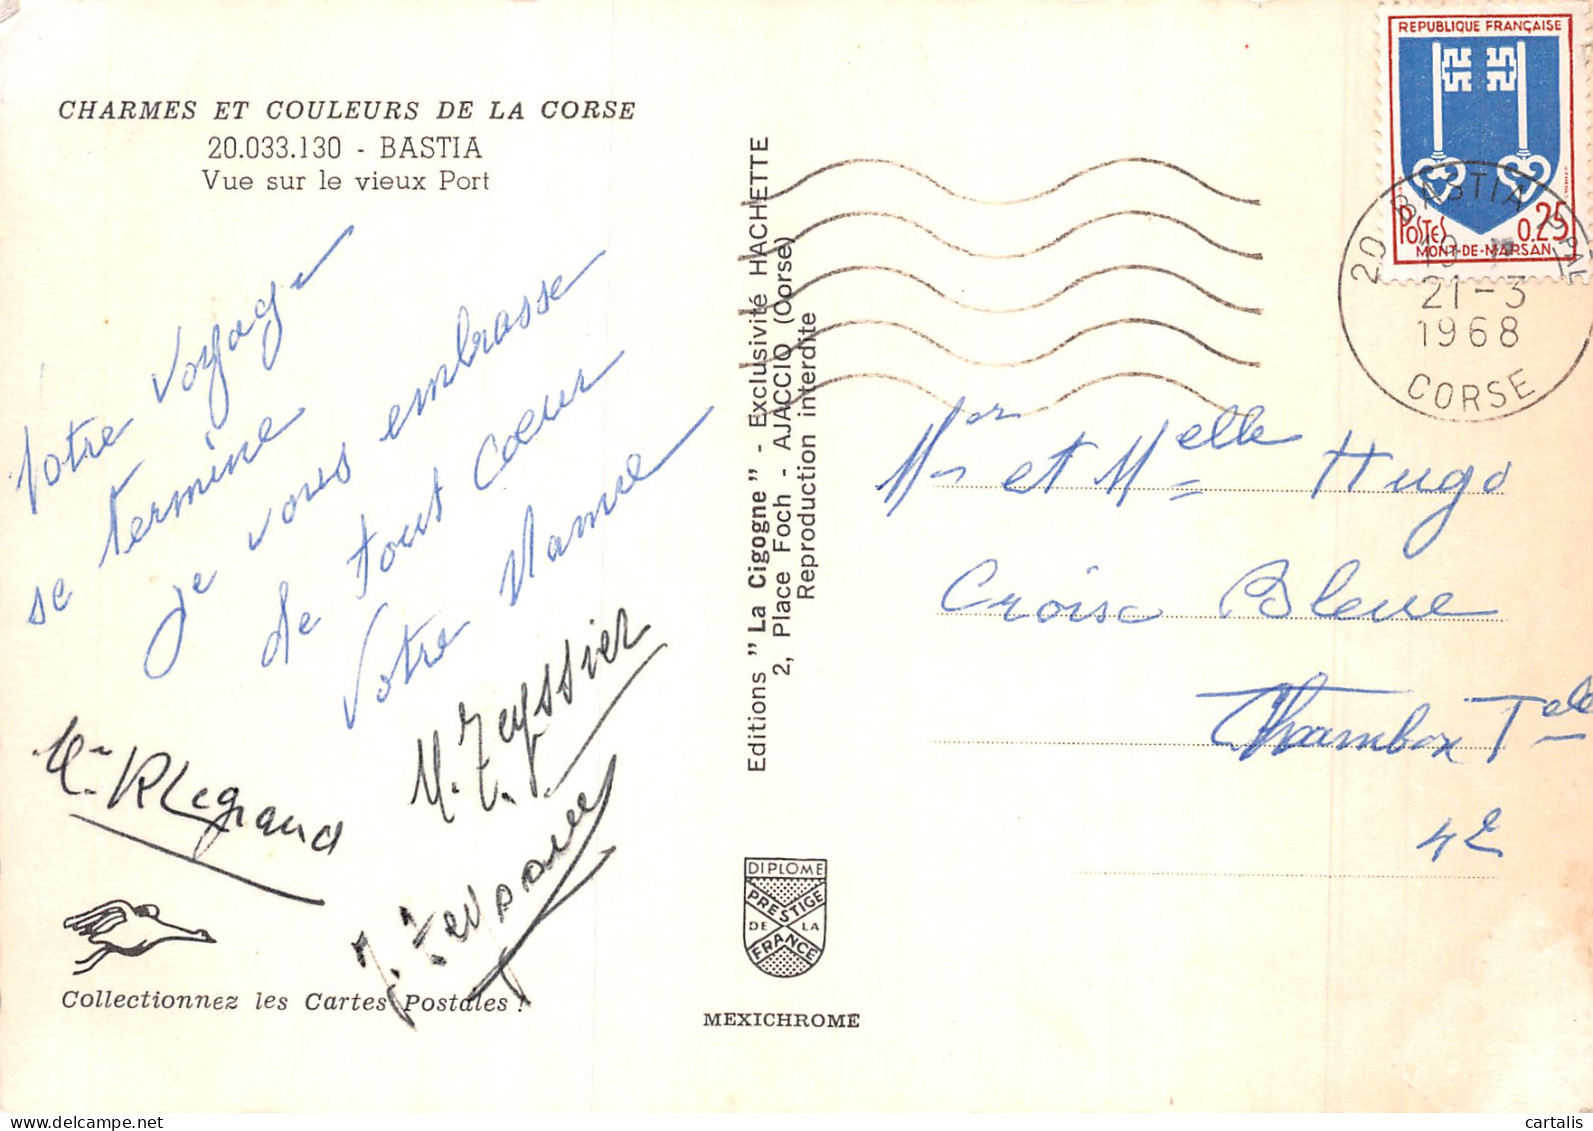 CHARMES ET COULEURS DE LA CORSE
20.033.130 - BASTIA
Vue sur le vieux Port
Votre voyage
se termine
je vous embrasse
de tout cœur
Votre Mame
M. Teyssier
R Legrand
Collectionnez les Cartes Postales !
Editions "La Cigogne" - Exclusivité HACHETTE
2, Place Foch - AJACCIO (Corse)
Reproduction interdite
DIPLOME
PRESTIGE
DE LA
FRANCE
MEXICHROME
REPUBLIQUE FRANÇAISE
POSTES 0.25
MONT-DE-MARSAN
20 BASTIA PPAL
21-3
1968
CORSE
Mr et Melle Hugo
Croise Bleue
Chambon Tele
42
cartalis
delcampe.net